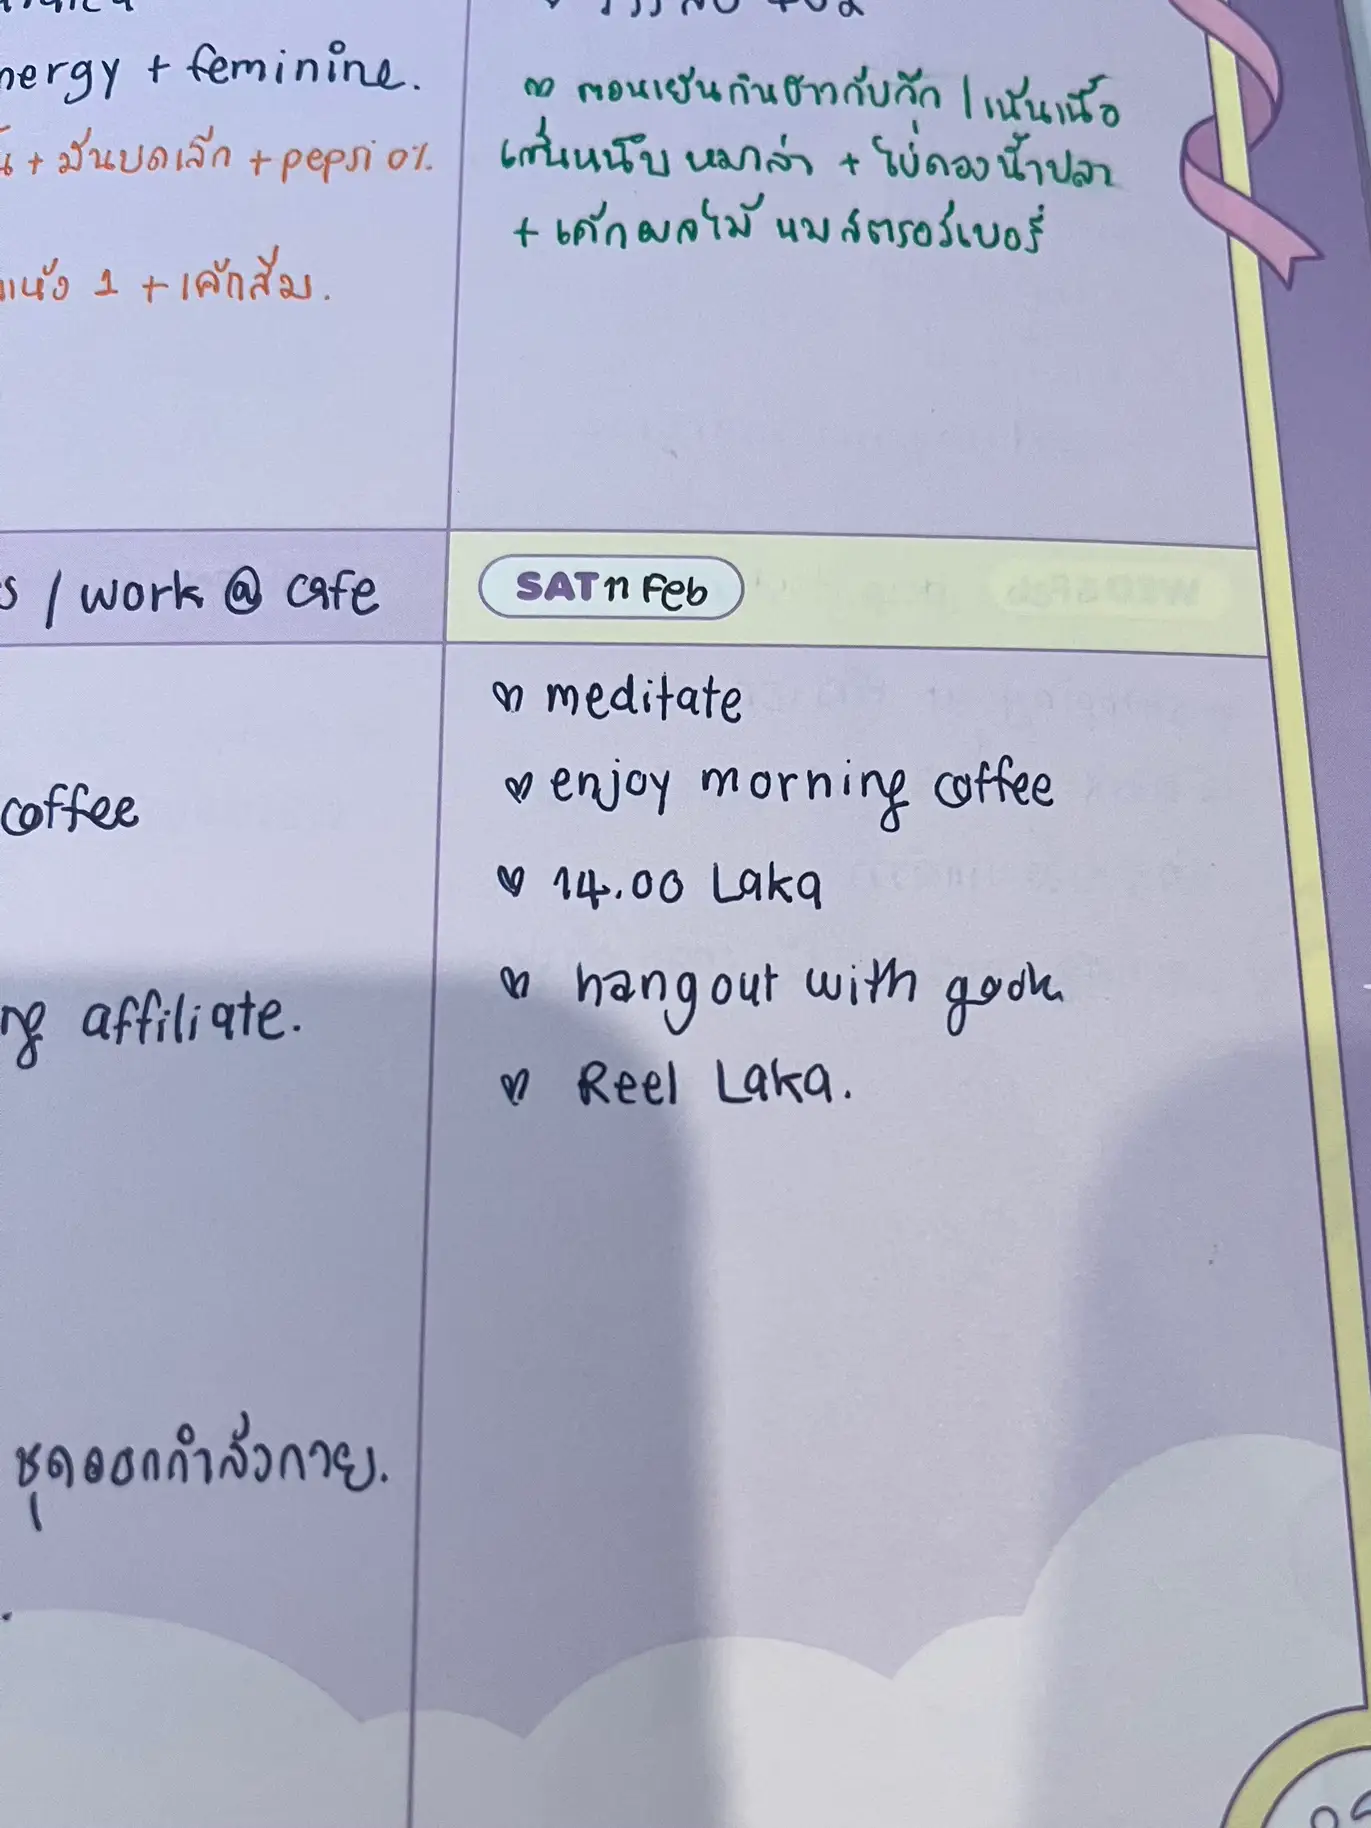 nergy + feminine.
+ มันบดเล็ก + pepsi 0%.
แห้ง 1 + เค้กส้ม.
ตอนเย็นกินข้าวกับกุ๊ก / เน้นเนื้อ
หมาล่า + ไข่ดองน้ำปลา
+ เค้กผลไม้ นมสตรอว์เบอรี่
s / work @ cafe
coffee
ng affiliate.
ชุดออกกำลังกาย.
SAT 11 Feb
♡ meditate
♡ enjoy morning coffee
♡ 14.00 Laka
♡ hangout with gook
♡ Reel Laka.